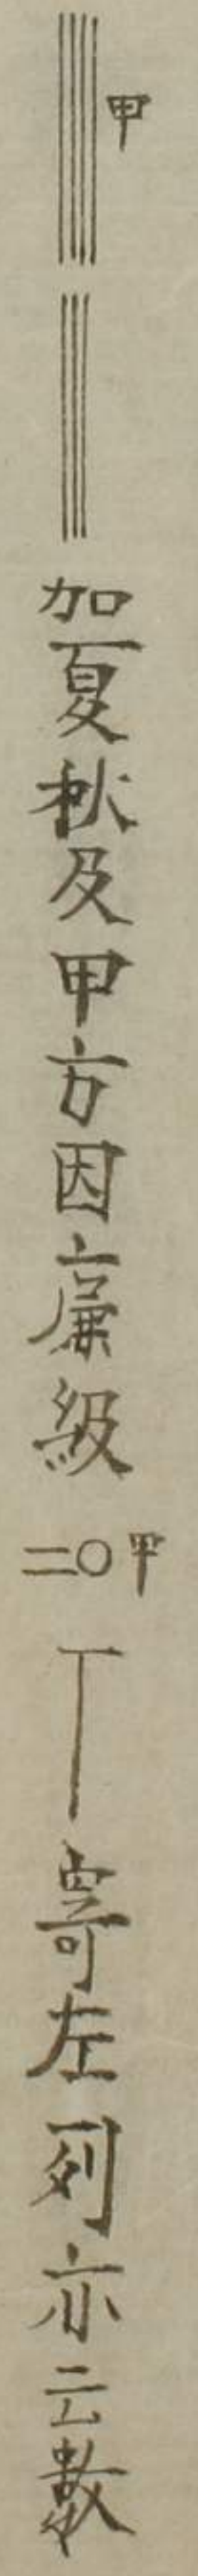 甲
加夏秋及甲方因廉級
二〇甲
寄左列亦云數